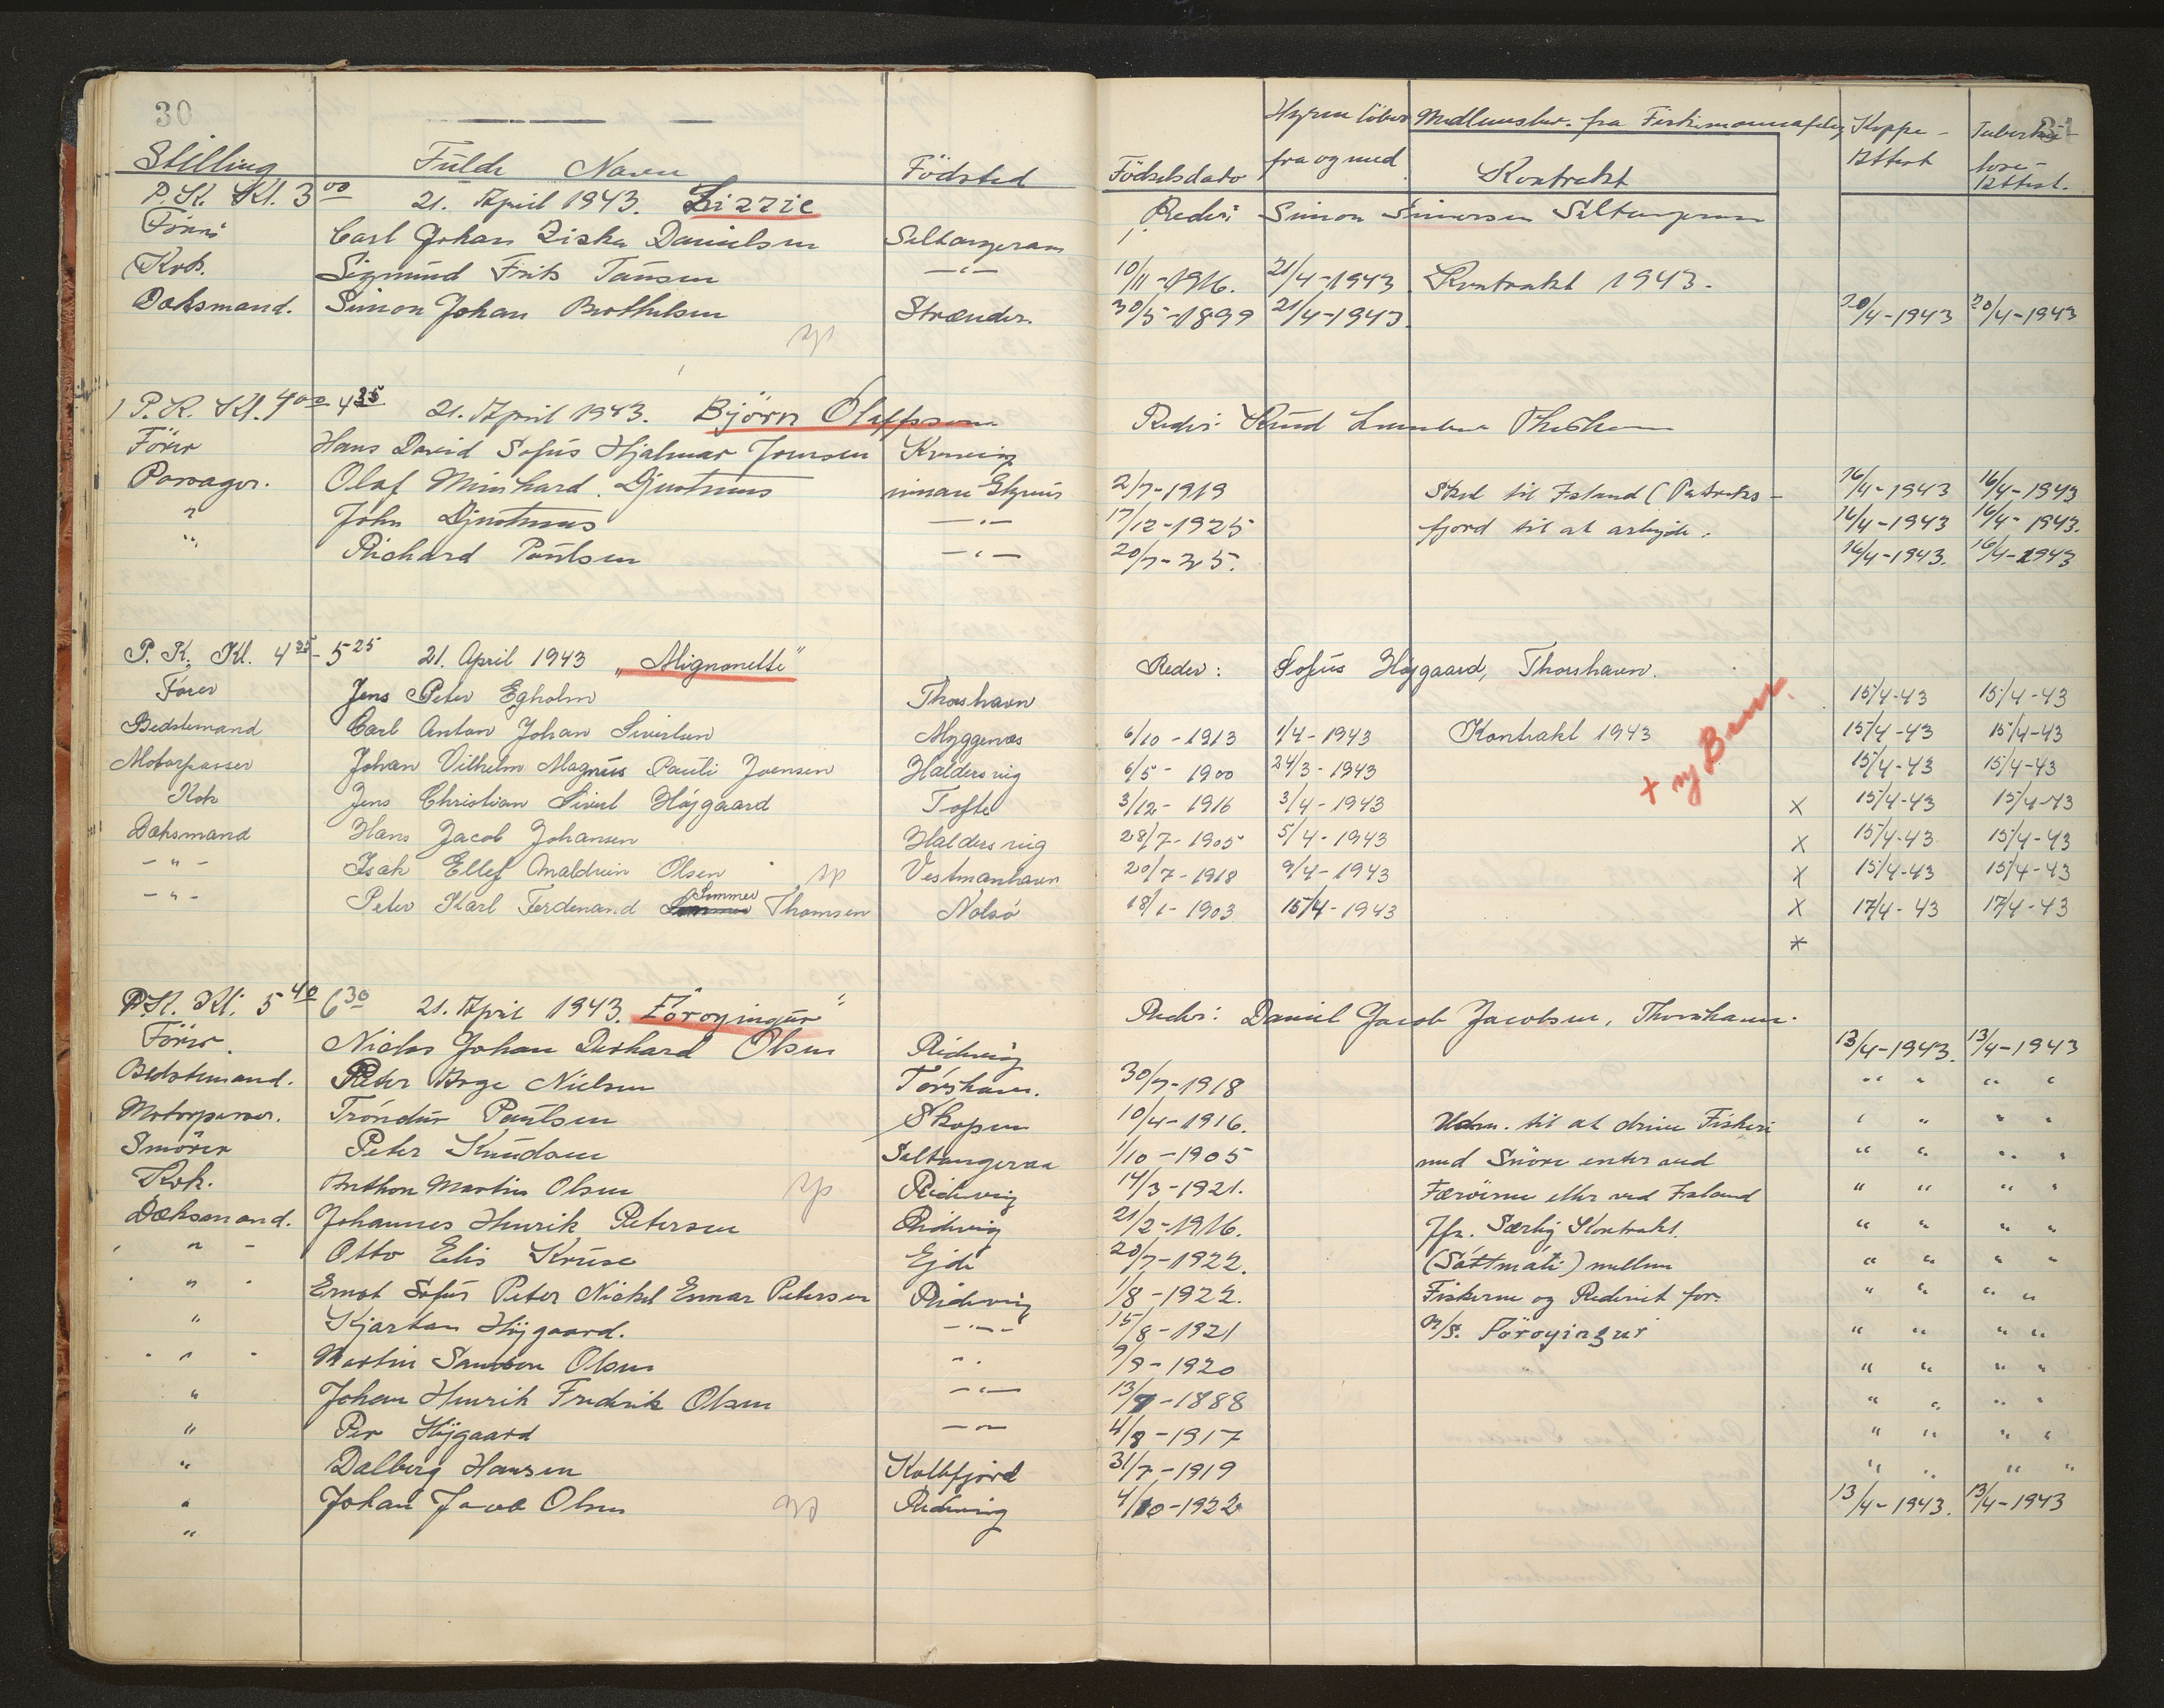 30
Stilling Fulde Navn Födsted Födselsdato Hyren löber fra og med Medlemsbev. fra Fiskimannafelag Kontrakt Koppe-Attest Tuberkulose-Attest.
P. K. Kl. 3 00 21. April 1943. Lizzie Reder: Simon Simonsen Saltangeraa
Förer Carl Johan Ziska Danielsen Saltangeraa
Kok. Sigmund Frits Jansen —"— 10/11-1916. 21/4-1943 Kontrakt 1943.
Dæksmand. Simon Johan Berthelsen Strænder. 30/5-1899 21/4-1943. 20/4-1943 20/4-1943
P. K. Kl. 4 00 - 4 35 21. April 1943. Björn Olaffsson Reder: Knud Thorshavn
Förer Hans David Sofus Hjalmar Joensen Kvivig
Passager. Olaf Meinhard Djurhuus 2/7-1919 Skal til Island (Patreks- 16/4-1943 16/4-1943
" John Djurhuus —"— 17/12-1925 fjord til at arbejde. 16/4-1943 16/4-1943.
" Richard Poulsen —"— 20/7-25. 16/4-1943. 16/4-1943
P. K. Kl. 4 35 - 5 25 21. April 1943 „Mignonette" Reder: Sofus Højgaard, Thorshavn.
Fører Jens Peter Egholm Thorshavn 15/4-43 15/4-43
Bedstemand Carl Anton Johan Sivertsen Myggenæs 6/10-1913 1/4-1943 Kontrakt 1943 15/4-43 15/4-43
Motorpasser Johan Vilhelm Magnus Pauli Joensen Haldersvig 6/5-1900 24/3-1943 15/4-43 15/4-43
Kok Jens Christian Sivert Højgaard Tofte 3/12-1916 3/4-1943 x 15/4-43 15/4-43
Dæksmand Hans Jacob Johansen Haldersvig 28/7-1905 5/4-1943 x 15/4-43 15/4-43
-"- Isak Ellef Olsen Vestmanhavn 20/7-1918 9/4-1943 x 15/4-43 15/4-43
-"- Peter Karl Ferdinand Simmer Thomsen Nolsö 18/1-1903 15/4-1943 x 17/4-43 17/4-43
x
P. K. Kl. 5 40 6 30 21. April 1943. Föroyingur" Reder: Daniel Jacob Jacobsen, Thorshavn.
Förer. Niclas Johan Olsen Ridevig 13/4-1943. 13/4-1943
Bedstemand. Peter Aage Nielsen Tórshavn. 30/7-1918 " " " "
Motorpasser. Tróndur Paulsen Skopun 10/4-1916. til at drive Fiskeri " " " "
Smörer Peter Knudsen Saltangeraa 1/10-1905 med Snöre enten ved " " " "
Kok. Anthon Martin Olsen Ridevig 14/3-1921. Færöerne eller ved Island " " " "
Dæksmand. Johannes Henrik Petersen Ridevig 21/2-1916. Jfr. Særlig Kontrakt. " " " "
" Otto Elis Kruse Ejde 20/7-1922. (Sáttmáli) mellem " " " "
" Ernst Sofus Peter Nickel Enmar Petersen Ridevig 1/8-1922. Fiskerne og Rederiet for. " " " "
" Kjartan Höjgaard. —"— 15/8-1921 M/S. Föroyingur " " " "
" Martin Samson Olsen " 9/9-1920 " " " "
" Johan Henrik Fredrik Olsen —"— 13/9-1888 " " " "
" Per Höjgaard —"— 4/8-1917 " " " "
" Dalberg Hansen Kolbfjord 31/7-1919 " " " "
" Johan Jacob Olsen Ridevig 4/10-1922 13/4-1943. 13/4-1943
"